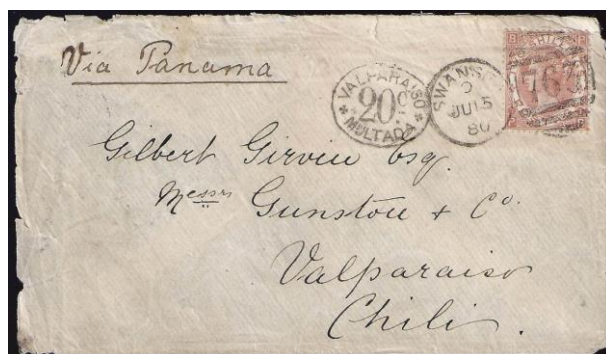 Via Panama
VALPARAISO
20 c
MULTADA
SWANSEA
JU 5
80
SHILL
763
Gilbert Girvin Esq.
Messrs Gunston & Co.
Valparaiso
Chili.